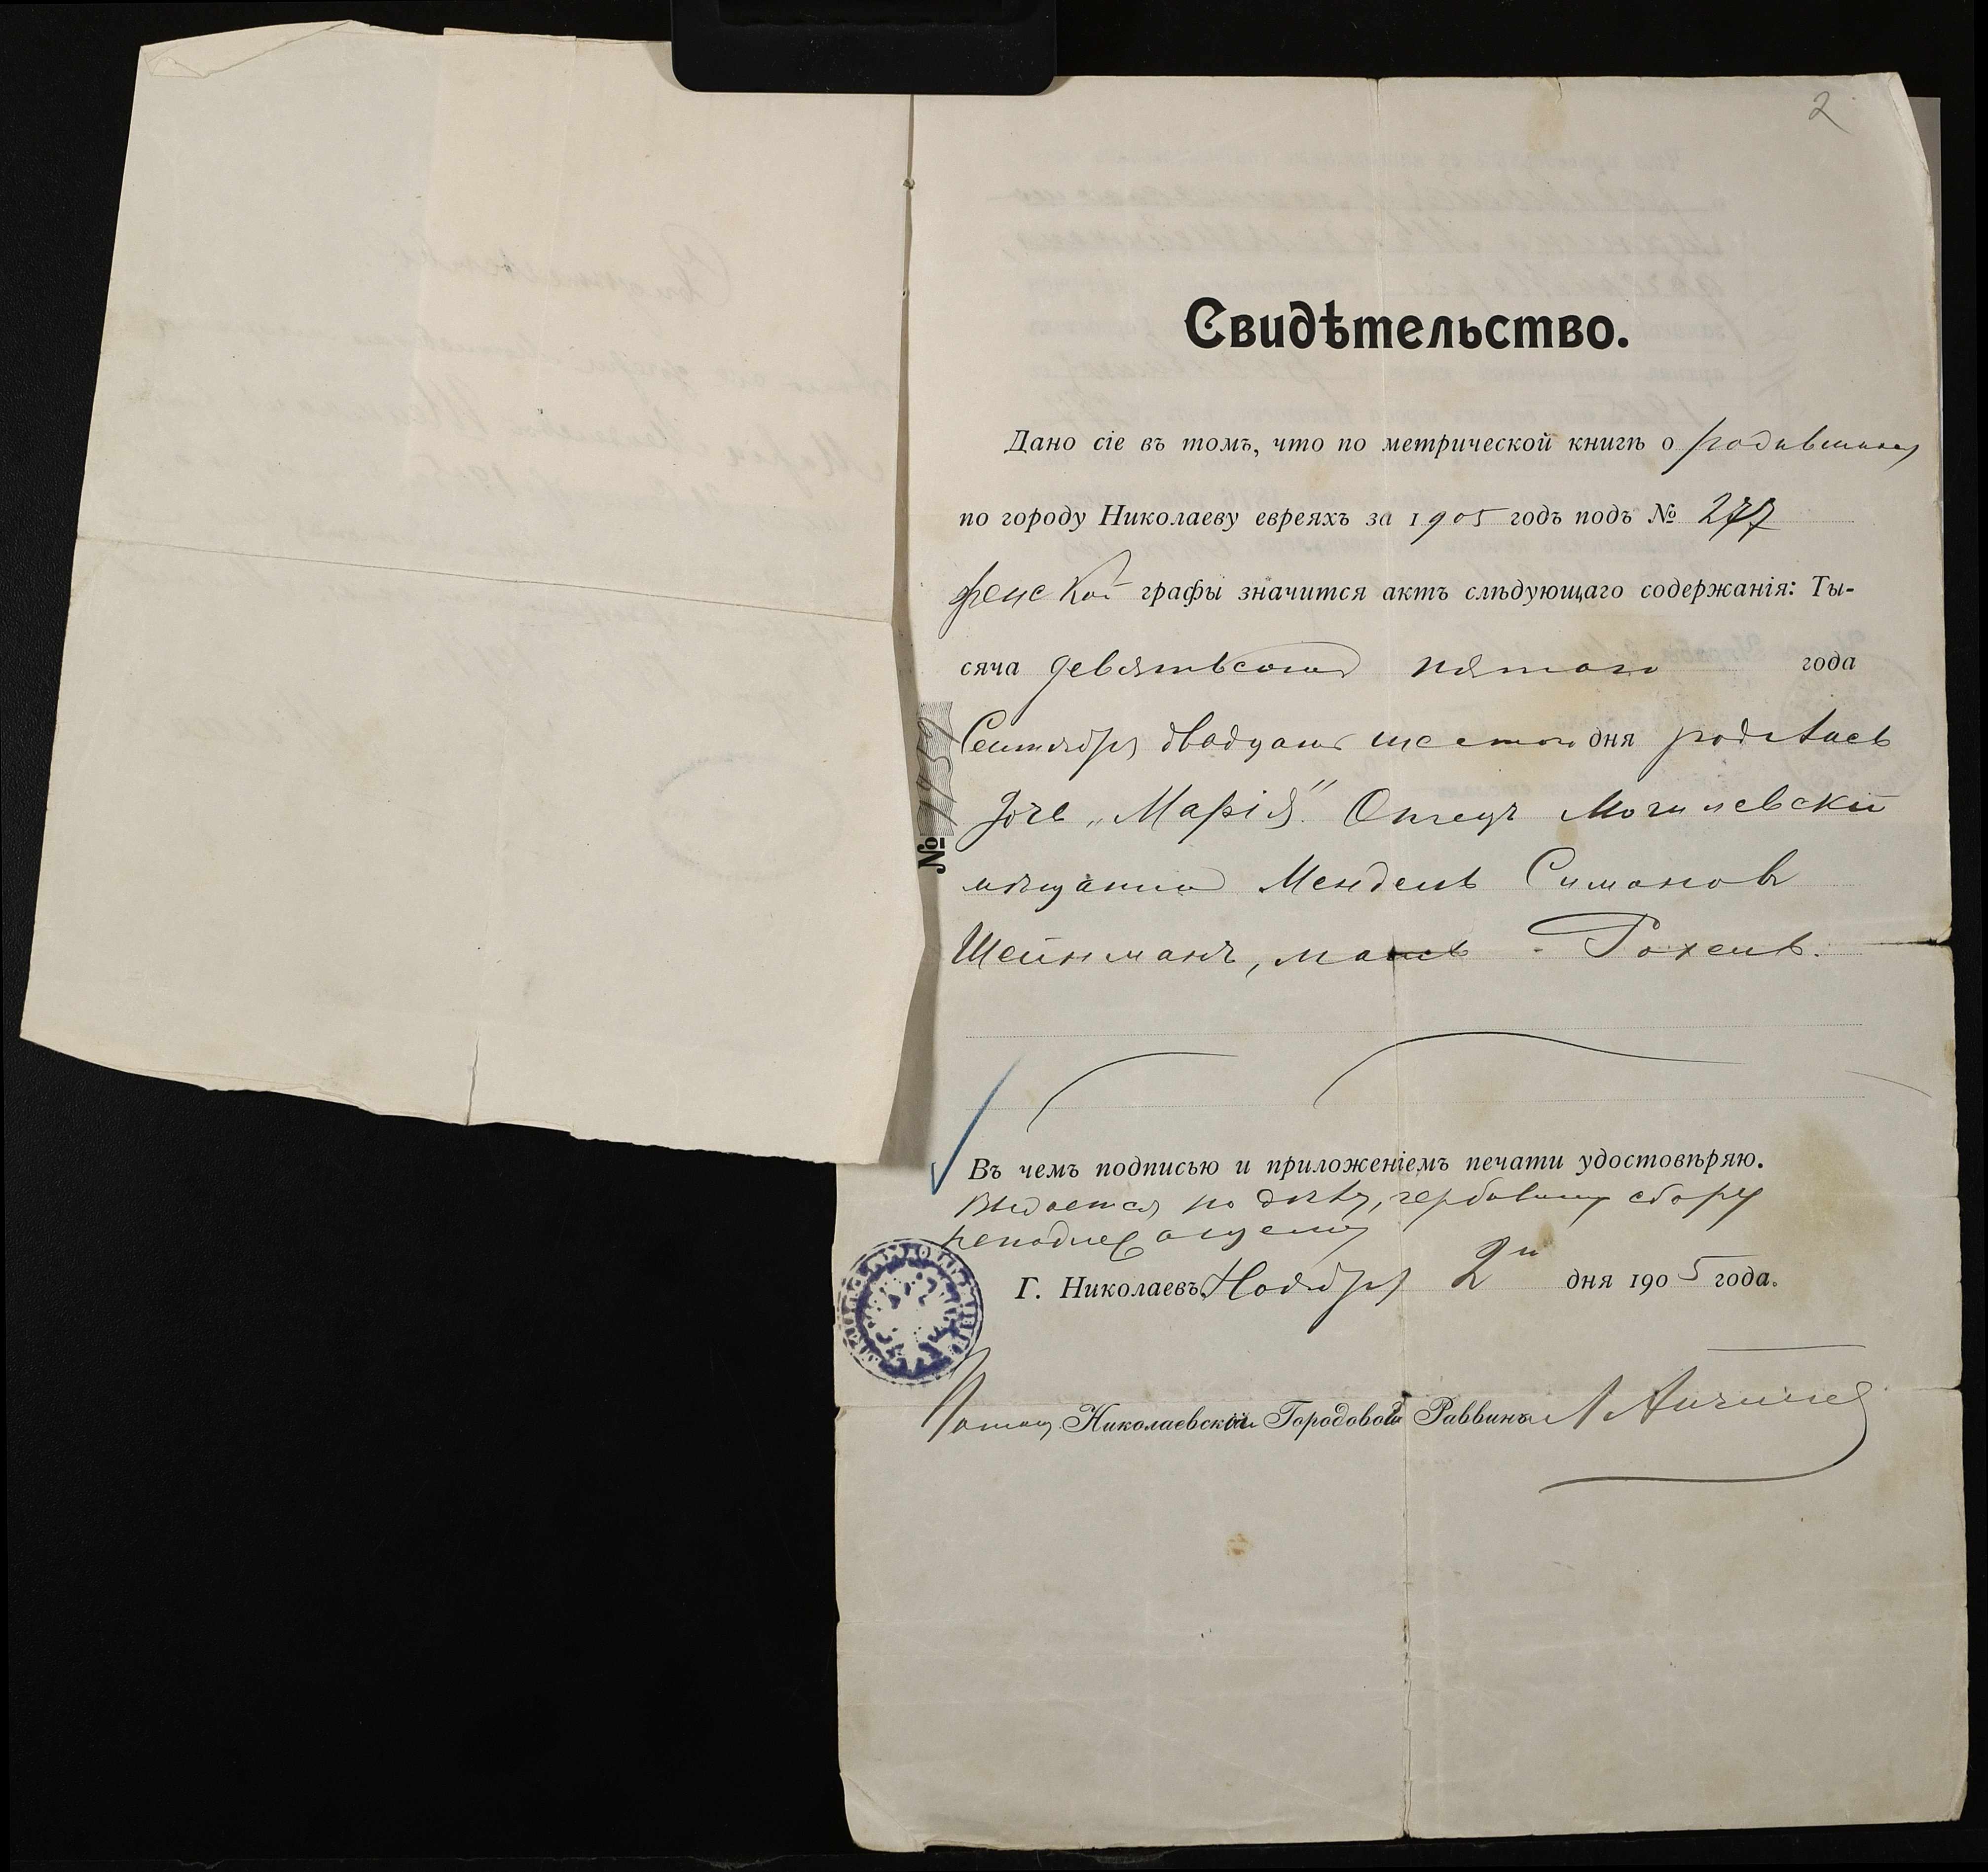 2
Свидѣтельство.
Дано сіе въ томъ, что по метрической книгѣ о родившихся
по городу Николаеву евреяхъ за 1905 годъ подъ № 277
женской графы значится актъ слѣдующаго содержанія: Ты-
сяча девятьсотъ пятаго года
Сентября двадцать шестого дня родилась
дочь „Марія". Отецъ Могилевскій
мѣщанинъ Мендель Симоновъ
Шейнманъ, мать - Рохель.
№
Въ чемъ подписью и приложеніемъ печати удостовѣряю.
Выдается по дѣлу, гербовому сбору
неподлежащему
Г. Николаевъ, Ноября 2го дня 1905 года.
Помощ. Николаевскаго Городового Раввина